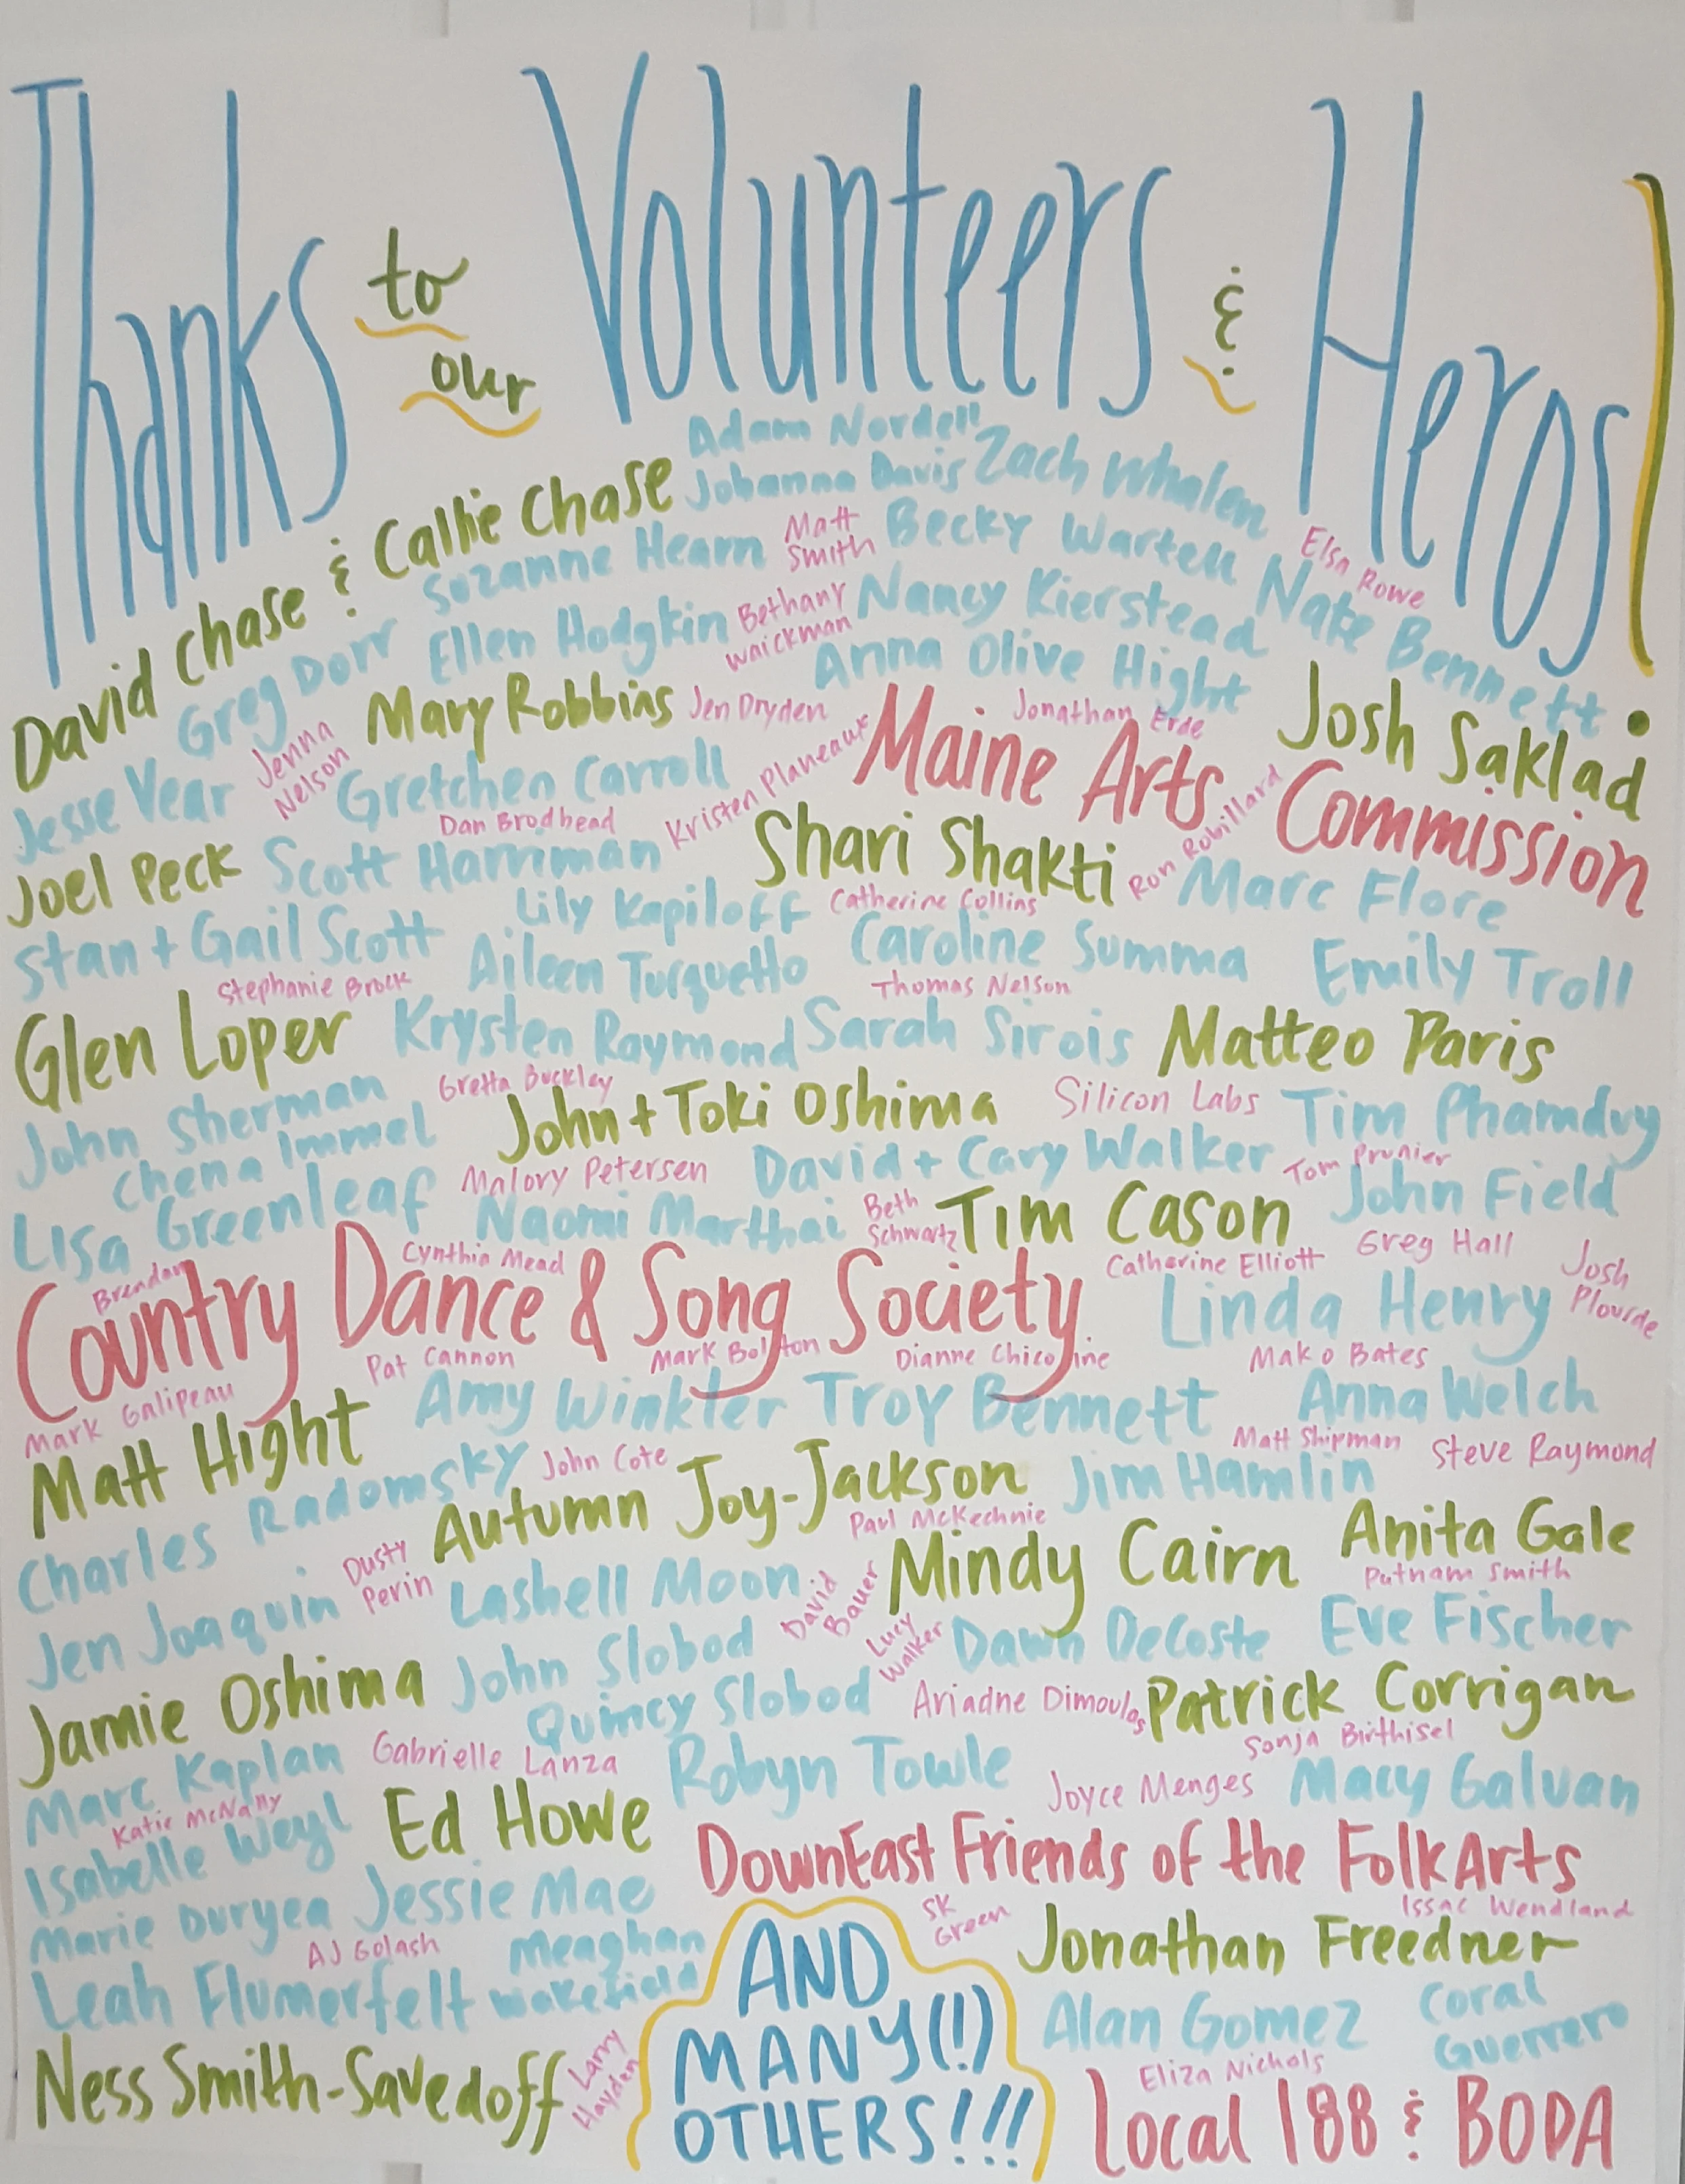 Thanks to our Volunteers & Heros!
Adam Nordell
David Chase & Callie Chase
Johanna Davis
Zach Whalen
Greg Dorr
Suzanne Hearn
Matt Smith
Becky Wartell
Elsa Rowe
Ellen Hodgkin
Bethany Waickman
Nancy Kierstead
Nate Bennett
Anna Olive Hight
Jesse Vear
Jenna Nelson
Mary Robbins
Jen Dryden
Jonathan Erde
Josh Saklad
Gretchen Carroll
Kristen Planeaux
Maine Arts Commission
Dan Brodhead
Joel Peck
Scott Harriman
Shari Shakti
Ron Robillard
Marc Flore
Stan + Gail Scott
Lily Kapiloff
Catherine Collins
Stephanie Brock
Aileen Turquetto
Caroline Summa
Emily Troll
Thomas Nelson
Glen Loper
Krysten Raymond
Sarah Sirois
Matteo Paris
John Sherman
Gretta Buckley
John + Toki Oshima
Silicon Labs
Tim Phamduy
Chena Immel
Malory Petersen
David + Cary Walker
Tom Prunier
Lisa Greenleaf
Naomi Marthai
Beth Schwartz
Tim Cason
John Field
Brendan
Cynthia Mead
Catherine Elliott
Greg Hall
Josh Plourde
Country Dance & Song Society
Linda Henry
Pat Cannon
Mark Bolton
Dianne Chicoine
Mako Bates
Mark Galipeau
Amy Winkler
Troy Bennett
Anna Welch
Matt Hight
Matt Shipman
Steve Raymond
Charles Radomsky
John Cote
Autumn Joy-Jackson
Jim Hamlin
Paul McKechnie
Anita Gale
Dusty Perin
Mindy Cairn
Putnam Smith
Jen Joaquin
Lashell Moon
David Bauer
Lucy Walker
Dawn DeCoste
Eve Fischer
Jamie Oshima
John Slobod
Quincy Slobod
Ariadne Dimoulas
Patrick Corrigan
Sonja Birthisel
Marc Kaplan
Gabrielle Lanza
Robyn Towle
Joyce Menges
Macy Galvan
Katie McNally
Isabelle Weyl
Ed Howe
DownEast Friends of the Folk Arts
Marie Duryea
Jessie Mae
SK Green
Issac Wendland
AJ Golash
Meaghan Wakefield
Jonathan Freedner
Leah Flumerfelt
AND
MANY(!)
OTHERS!!!
Alan Gomez
Coral Guerrero
Ness Smith-Savedoff
Larry Hayden
Eliza Nichols
Local 188 & BODA